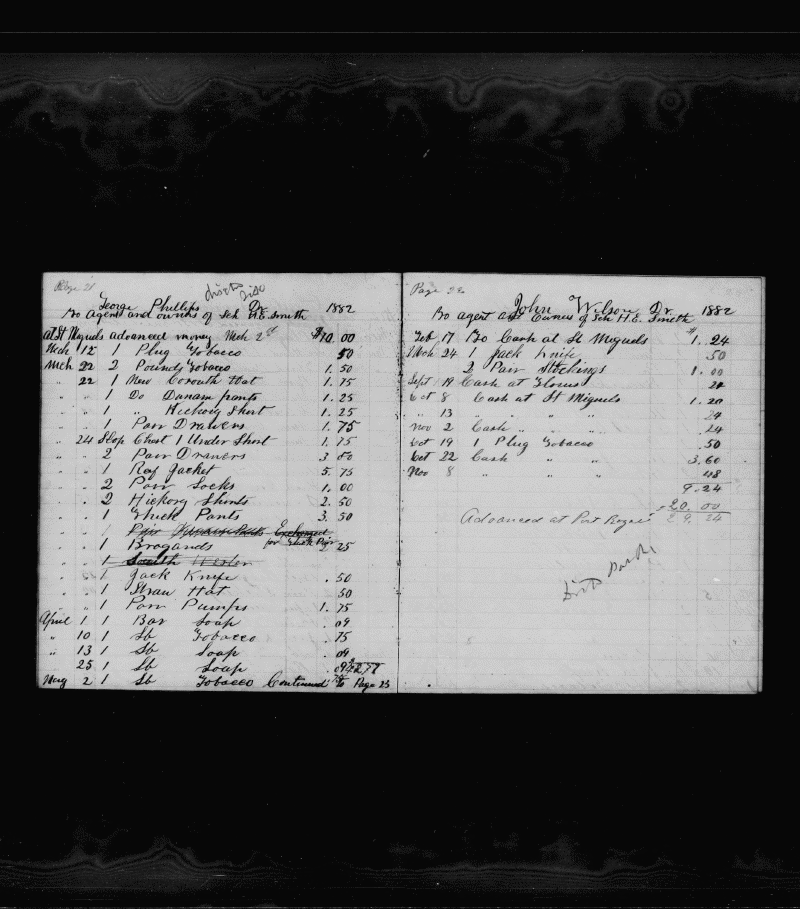 Page 21
George Phillips Dr 1882
To Agent and owners of Sch H.E. Smith
at St Miguels advanced money Mch 2d $10.00
Mch 12 1 Plug Tobacco 50
Mch 22 2 Pounds Tobacco 1.50
" 22 1 New Hat 1.75
" " 1 Do Danam pants 1.25
" " 1 " Hickory Shirt 1.25
" " 1 Pair Drawers 1.75
" 24 Slop Chest 1 Under Shirt 1.75
" " 2 Pair Drawers 3 00
" " 1 Jacket 5.75
" " 2 Pair Socks 1.00
" " 2 Hickory Shirts 2.50
" " 1 Thick Pants 3.50
" " 1 Pair Exchanged
for Thick Pair
" " 1 Brogands 2 25
" " 1 South Wester
" " 1 Jack Knife .50
" " 1 Straw Hat 50
" " 1 Pair Pumps 1.75
April 1 1 Bar Soap .09
" 10 1 lb Tobacco .75
" 13 1 lb Soap .09
25 1 lb Soap .09
May 2 1 lb Tobacco Continued to Page 25
Page 22
John Wilson Dr 1882
To agent and Owners of Sch H.E. Smith
Feb 17 To Cash at St Miguels $1.24
Mch 24 1 Jack Knife .50
2 Pair Stockings 1.00
Sept 19 Cash at Flores 24
Oct 8 Cash at St Miguels 1.20
" 13 " " " 24
Nov 2 Cash " " " .24
Oct 19 1 Plug Tobacco .50
Oct 22 Cash " " 3.60
Nov 8 " " " 48
9.24
20.00
Advanced at Port 29.24